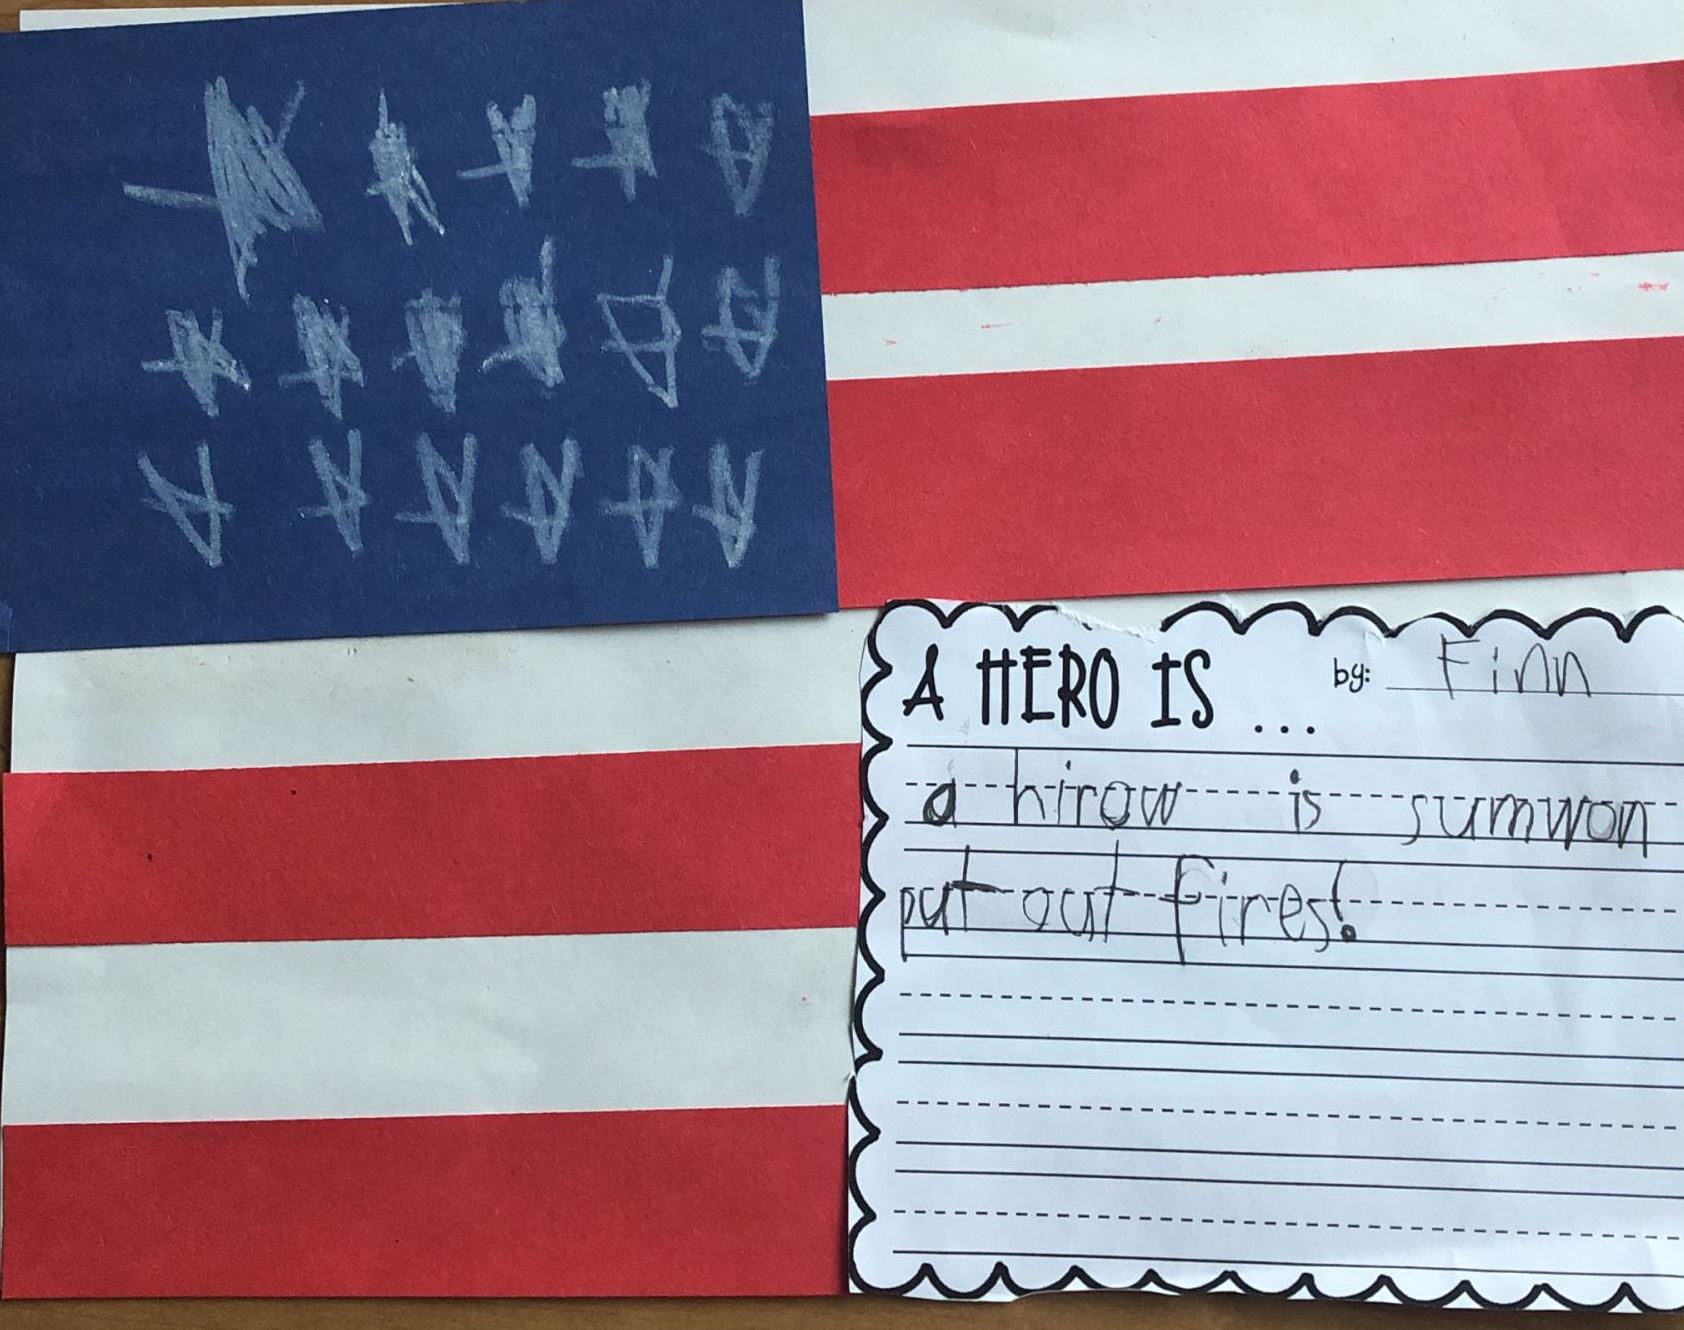 A HERO IS ... by: Finn
a hirow is sumwon
put out fires!